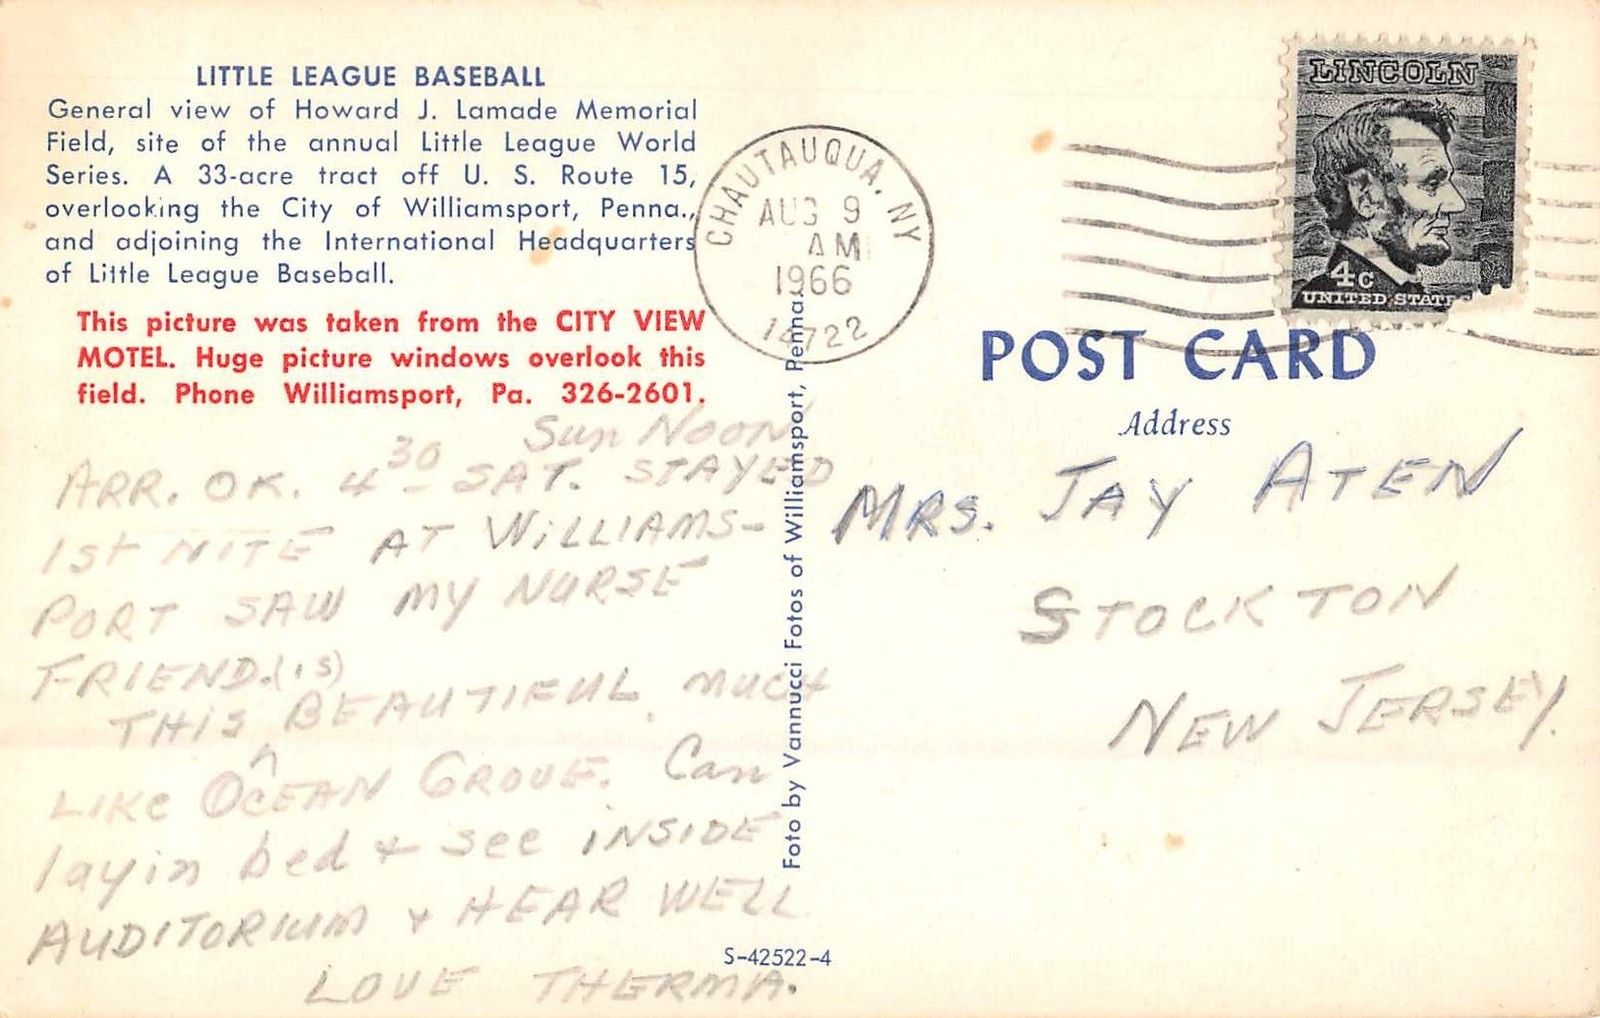 LITTLE LEAGUE BASEBALL
General view of Howard J. Lamade Memorial
Field, site of the annual Little League World
Series. A 33-acre tract off U. S. Route 15,
overlooking the City of Williamsport, Penna.,
and adjoining the International Headquarters
of Little League Baseball.
This picture was taken from the CITY VIEW
MOTEL. Huge picture windows overlook this
field. Phone Williamsport, Pa. 326-2601.
Sun NOON
ARR. OK. 4 30 SAT. STAYED
1st NITE AT WiLLIAMS-
PORT SAW MY NURSE
FRIEND.
(is)
THiS ^ BEAUTIFUL, MUCH
LIKE OCEAN GROVE. Can
lay in bed + see INSIDE
AUDITORIUM + HEAR WELL
LOVE THERMA.
Foto by Vannucci Fotos of Williamsport, Penna.
S-42522-4
CHAUTAUQUA, NY
AUG 9
AM
1966
14722
LINCOLN
4c
UNITED STATE
POST CARD
Address
MRS. JAY ATEN
STOCKTON
NEW JERSEY.